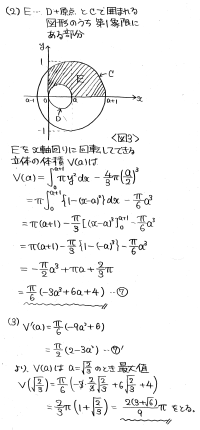 (2) E… D+原点 とCで囲まれる
図形のうち 第1象限に
ある部分
y
1
E
C
a-1
0
a
a+1
x
D
-1
<図3>
Eをx軸回りに回転してできる
立体の体積 V(a)は
V(a) = ∫₀^{a+1} πy² dx - 4/3 π(a/2)³
= π∫₀^{a+1} {1-(x-a)²} dx - π/6 a³
= π(a+1) - π/3 [(x-a)³]₀^{a+1} - π/6 a³
= π(a+1) - π/3 {1-(-a)³} - π/6 a³
= -π/2 a³ + πa + 2/3 π
= π/6 (-3a³+6a+4) … ⑦
(3) V'(a) = π/6 (-9a²+6)
= π/2 (2-3a²) … ⑦'
より V(a) は a=√(2/3) のとき 最大値
V(√(2/3)) = π/6 (-3·2/3 √(2/3) + 6√(2/3) + 4)
= 2/3 π(1+√(2/3)) = 2(3+√6)/9 π をとる。